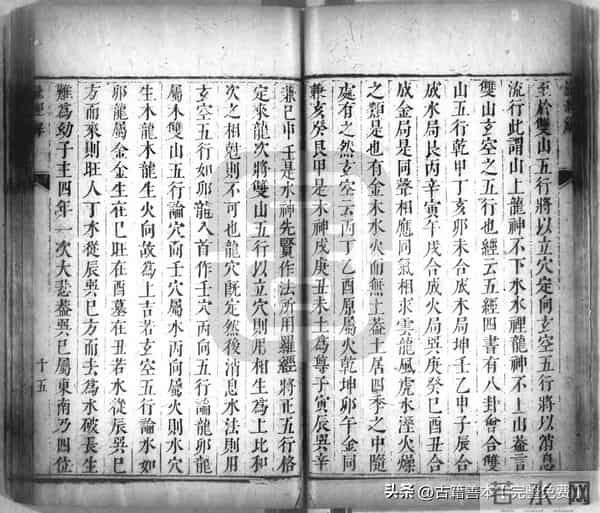 至於雙山五行將以立穴定向玄空五行將以消息
流行此謂山上龍神不下水水裡龍神不上山葢言
雙山玄空之五行也經云五經四書有八卦會合雙
山五行乾甲丁亥卯未合成木局坤壬乙申子辰合
成水局艮丙辛寅午戌合成火局巽庚癸巳酉丑合
成金局是同聲相應同氣相求雲龍風虎水溼火燥
之類是也有金木水火而無土葢土居四季之中隨
處有之然玄空云丙丁乙酉原屬火乾坤卯午金同
亥癸艮甲是木神戌庚丑未土為尊子寅辰巽辛
兼巳申壬是水神先賢作法所用羅經將正五行格
定來龍次將雙山五行以立穴則用相生為上比和
次之相尅則不可也龍穴既定然後消息水法則用
玄空五行如卯龍入首作壬穴丙向五行論龍卯龍
屬木雙山五行論穴向壬穴屬水丙向屬火則水穴
生木龍木龍生火向故為上吉若玄空五行論水如
卯龍屬金金生在巳旺在酉墓在丑若水從辰巽巳
方而來則旺人丁水從辰巽巳方而去為水破長生
難為幼子主四年一次大悲葢巽巳屬東南乃四位
十五
头条 @古籍善本 完整免费